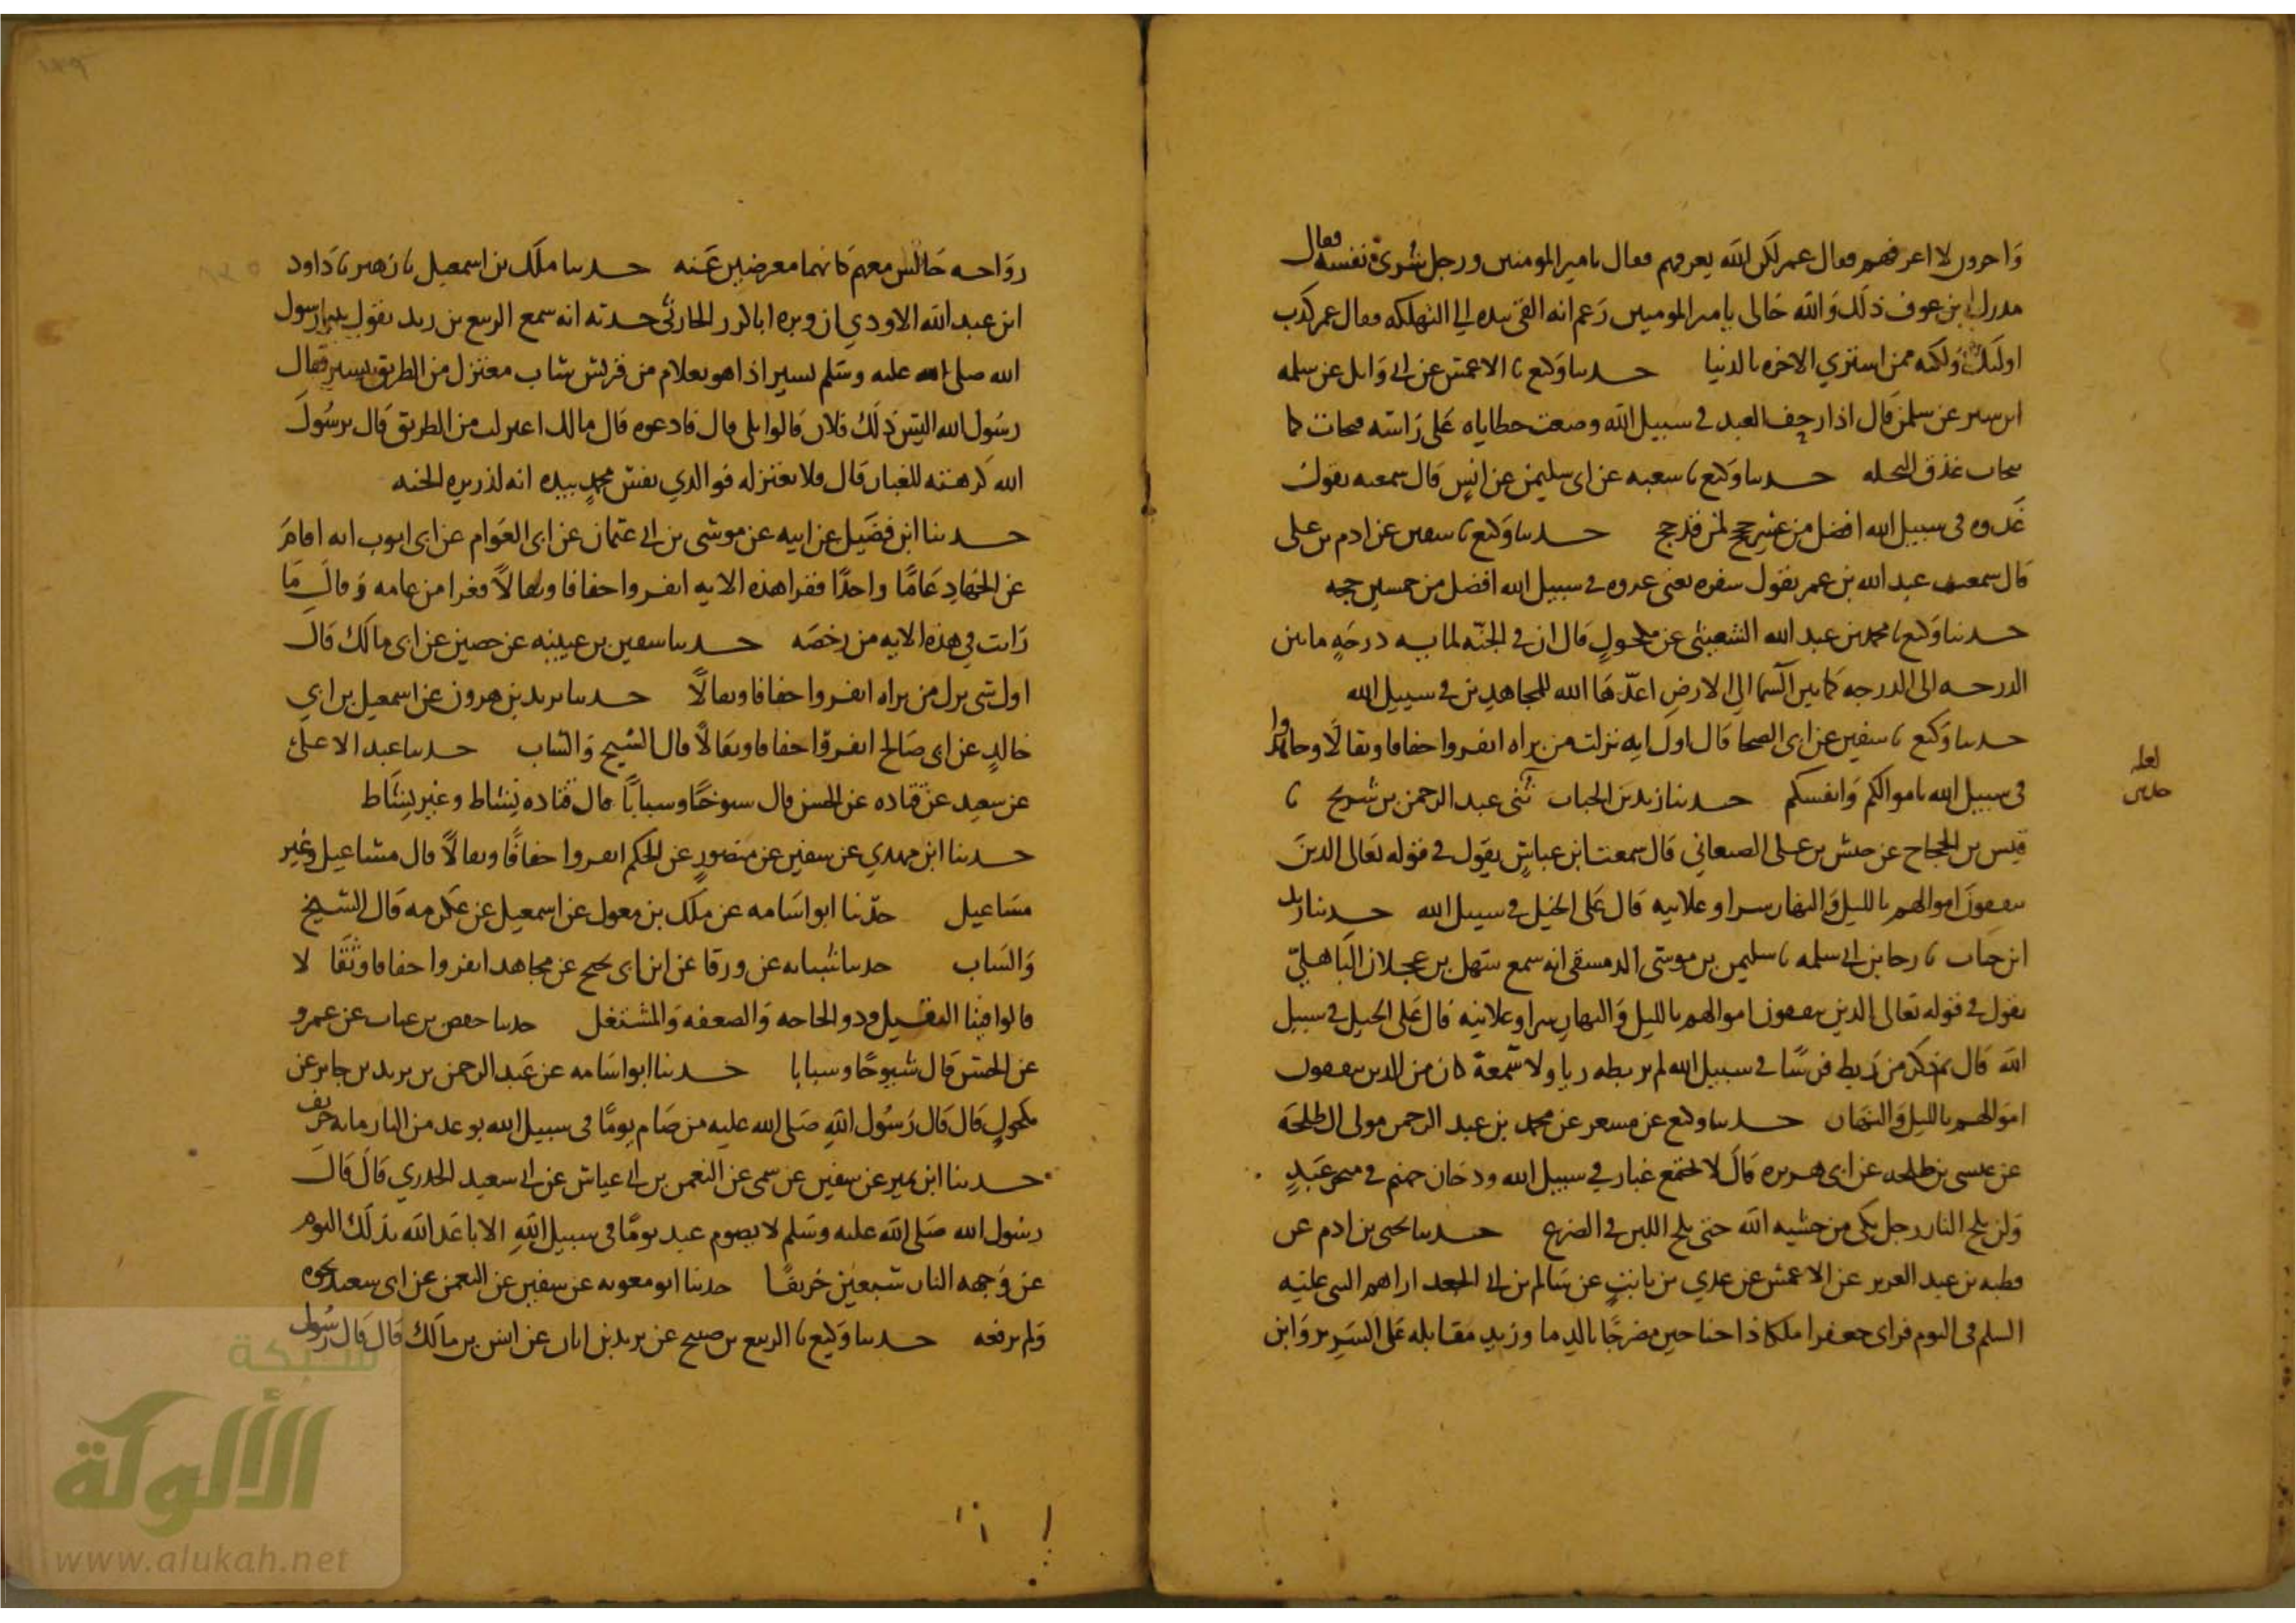 واخرون لا اعرفهم فقال عمر لكن الله يعرفهم فقال يا امير المومنين ورجل شرى نفسه فقال
مدرك بن عوف ذلك والله خالى يا امير المومنين زعم انه القى بيده الى التهلكه فقال عمر كذب
اوليك ولكنه ممن اشترى الاخره بالدنيا حدثنا وكيع نا الاعمش عن ابى وايل عن سلمه
ابن سبره عن سلمن قال اذا رجف العبد فى سبيل الله وضعت خطاياه على راسه فتحات كما
تتحات عذق النخله حدثنا وكيع نا شعبه عن ابى سليمن عن انس قال سمعته يقول
غدوه فى سبيل الله افضل من عشر حجج لمن قد حج حدثنا وكيع نا سفين عن ادم بن على
قال سمعت عبد الله بن عمر يقول سفره يعنى غدوه فى سبيل الله افضل من خمسين حجه
حدثنا وكيع نا محمد بن عبد الله الشعيثى عن مكحول قال ان فى الجنه لمايه درجه ما بين
الدرجه الى الدرجه كما بين السما الى الارض اعدها الله للمجاهدين فى سبيل الله
حدثنا وكيع نا سفين عن ابى الضحا قال اول ايه نزلت من براه انفروا خفافا وثقالا وجاهدوا
فى سبيل الله باموالكم وانفسكم حدثنا زيد بن الحباب ثنى عبد الرحمن بن شريح نا
قيس بن الحجاج عن حنش بن على الصنعانى قال سمعت ابن عباس يقول فى قوله تعالى الذين
ينفقون اموالهم بالليل والنهار سرا وعلانيه قال على الخيل فى سبيل الله حدثنا زيد
ابن حباب نا رجا بن ابى سلمه نا سليمن بن موسى الدمشقى انه سمع سهل بن عجلان الباهلى
يقول فى قوله تعالى الذين ينفقون اموالهم بالليل والنهار سرا وعلانيه قال على الخيل فى سبيل
الله قال من ربط فرسا فى سبيل الله لم يربطه ريا ولا سمعة كان من الذين ينفقون
اموالهم بالليل والنهار حدثنا وكيع عن مسعر عن محمد بن عبد الرحمن مولى ال طلحة
عن عيسى بن طلحه عن ابى هريره قال لا يجتمع غبار فى سبيل الله ودخان جهنم فى منخر عبد
ولن يلج النار رجل بكى من خشيه الله حتى يلج اللبن فى الضرع حدثنا يحيى بن ادم عن
قطبه بن عبد العزيز عن الاعمش عن عدى بن ثابت عن سالم بن ابى الجعد اراهم النبى عليه
السلم فى النوم فراى جعفرا ملكا ذا جناحين مضرجا بالدما وزيد مقابله على السرير وابن
لعله
حدثنى
رواحه جالس معهم كانهما معرضين عنه حدثنا ملك بن اسمعيل نا زهير نا داود
ابن عبد الله الاودى ان وبره ابا كرز الحارثى حدثه انه سمع الربيع بن زيد يقول بينما رسول
الله صلى الله عليه وسلم يسير اذا هو بغلام من قريش شاب معتزل من الطريق يسير فقال
رسول الله اليس ذلك فلان قالوا بلى قال فادعوه قال مالك اعتزلت من الطريق قال يرسول
الله كرهته للغبار قال فلا تعتزله فو الذى نفس محمد بيده انه لذريره الجنه
حدثنا ابن فضيل عن ابيه عن موسى بن ابى عثمان عن ابى العوام عن ابى ايوب انه اقام
عن الجهاد عاما واحدا فقرا هذه الايه انفروا خفافا وثقالا فغزا من عامه وقال ما
رايت فى هذه الايه من رخصه حدثنا سفين بن عيينه عن حصين عن ابى مالك قال
اول شى نزل من براه انفروا خفافا وثقالا حدثنا يزيد بن هرون عن اسمعيل بن ابى
خالد عن ابى صالح انفروا خفافا وثقالا قال الشيخ والشاب حدثنا عبد الاعلى
عن سعيد عن قتاده عن الحسن قال شيوخا وشبابا قال قتاده نشاط وغير نشاط
حدثنا ابن مهدى عن سفين عن منصور عن الحكم انفروا خفافا وثقالا قال مشاغيل وغير
مشاغيل حدثنا ابو اسامه عن ملك بن مغول عن اسمعيل عن عكرمه قال الشيخ
والشاب حدثنا شبابه عن ورقا عن ابن ابى نجيح عن مجاهد انفروا خفافا وثقا لا
قالوا فينا الثقيل وذو الحاجه والضعفه والمشتغل حدثنا حفص بن غياث عن عمرو
عن الحسن قال شيوخا وشبابا حدثنا ابو اسامه عن عبد الرحمن بن يزيد بن جابر عن
مكحول قال قال رسول الله صلى الله عليه من صام يوما فى سبيل الله بوعد من النار مايه خريف
حدثنا ابن نمير عن سفين عن سمى عن النعمن بن ابى عياش عن ابى سعيد الخدرى قال قال
رسول الله صلى الله عليه وسلم لا يصوم عبد يوما فى سبيل الله الا باعد الله بذلك اليوم
عن وجهه النار سبعين خريفا حدثنا ابو معويه عن سفين عن النعمن عن ابى سعيد نحوه
ولم يرفعه حدثنا وكيع نا الربيع بن صبيح عن يزيد بن ابان عن انس بن مالك قال قال رسول
شبكة
الألوكة
www.alukah.net